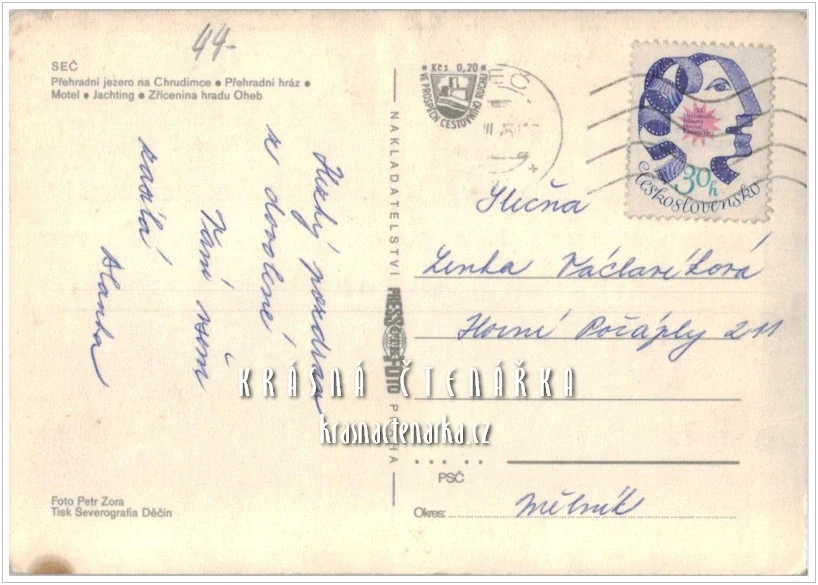 44-
SEČ
Přehradní jezero na Chrudimce • Přehradní hráz •
Motel • Jachting • Zřícenina hradu Oheb
Hezký pozdrav
z dovolené
Vám všem
zasílá
Blanka
NAKLADATELSTVÍ PRESSFOTO PRAHA
Kčs 0,20
VE PROSPĚCH CESTOVNÍHO RUCHU
30h
Československo
Slečna
Lenka Václavíková
Horní Počáply 211
KRÁSNÁ ČTENÁŘKA
krasnactenarka.cz
PSČ
Okres: Mělník
Foto Petr Zora
Tisk Severografia Děčín